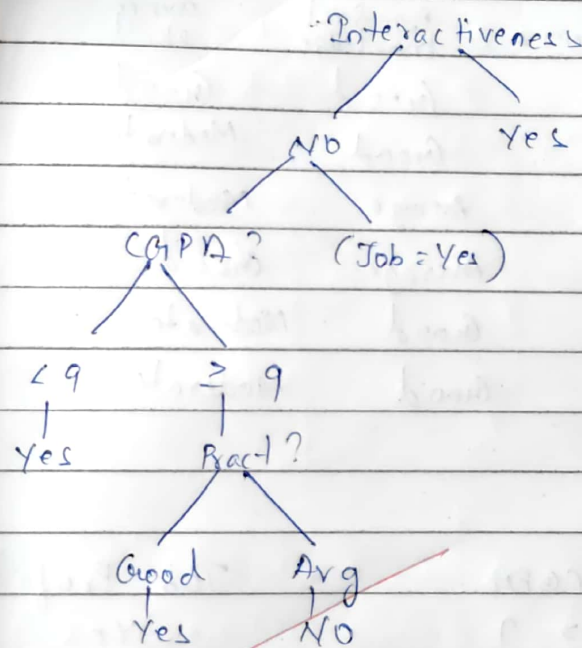 Interactiveness
NO Yes
CGPA? (Job = Yes)
< 9 ≥ 9
Yes Pract?
Good Avg
Yes NO